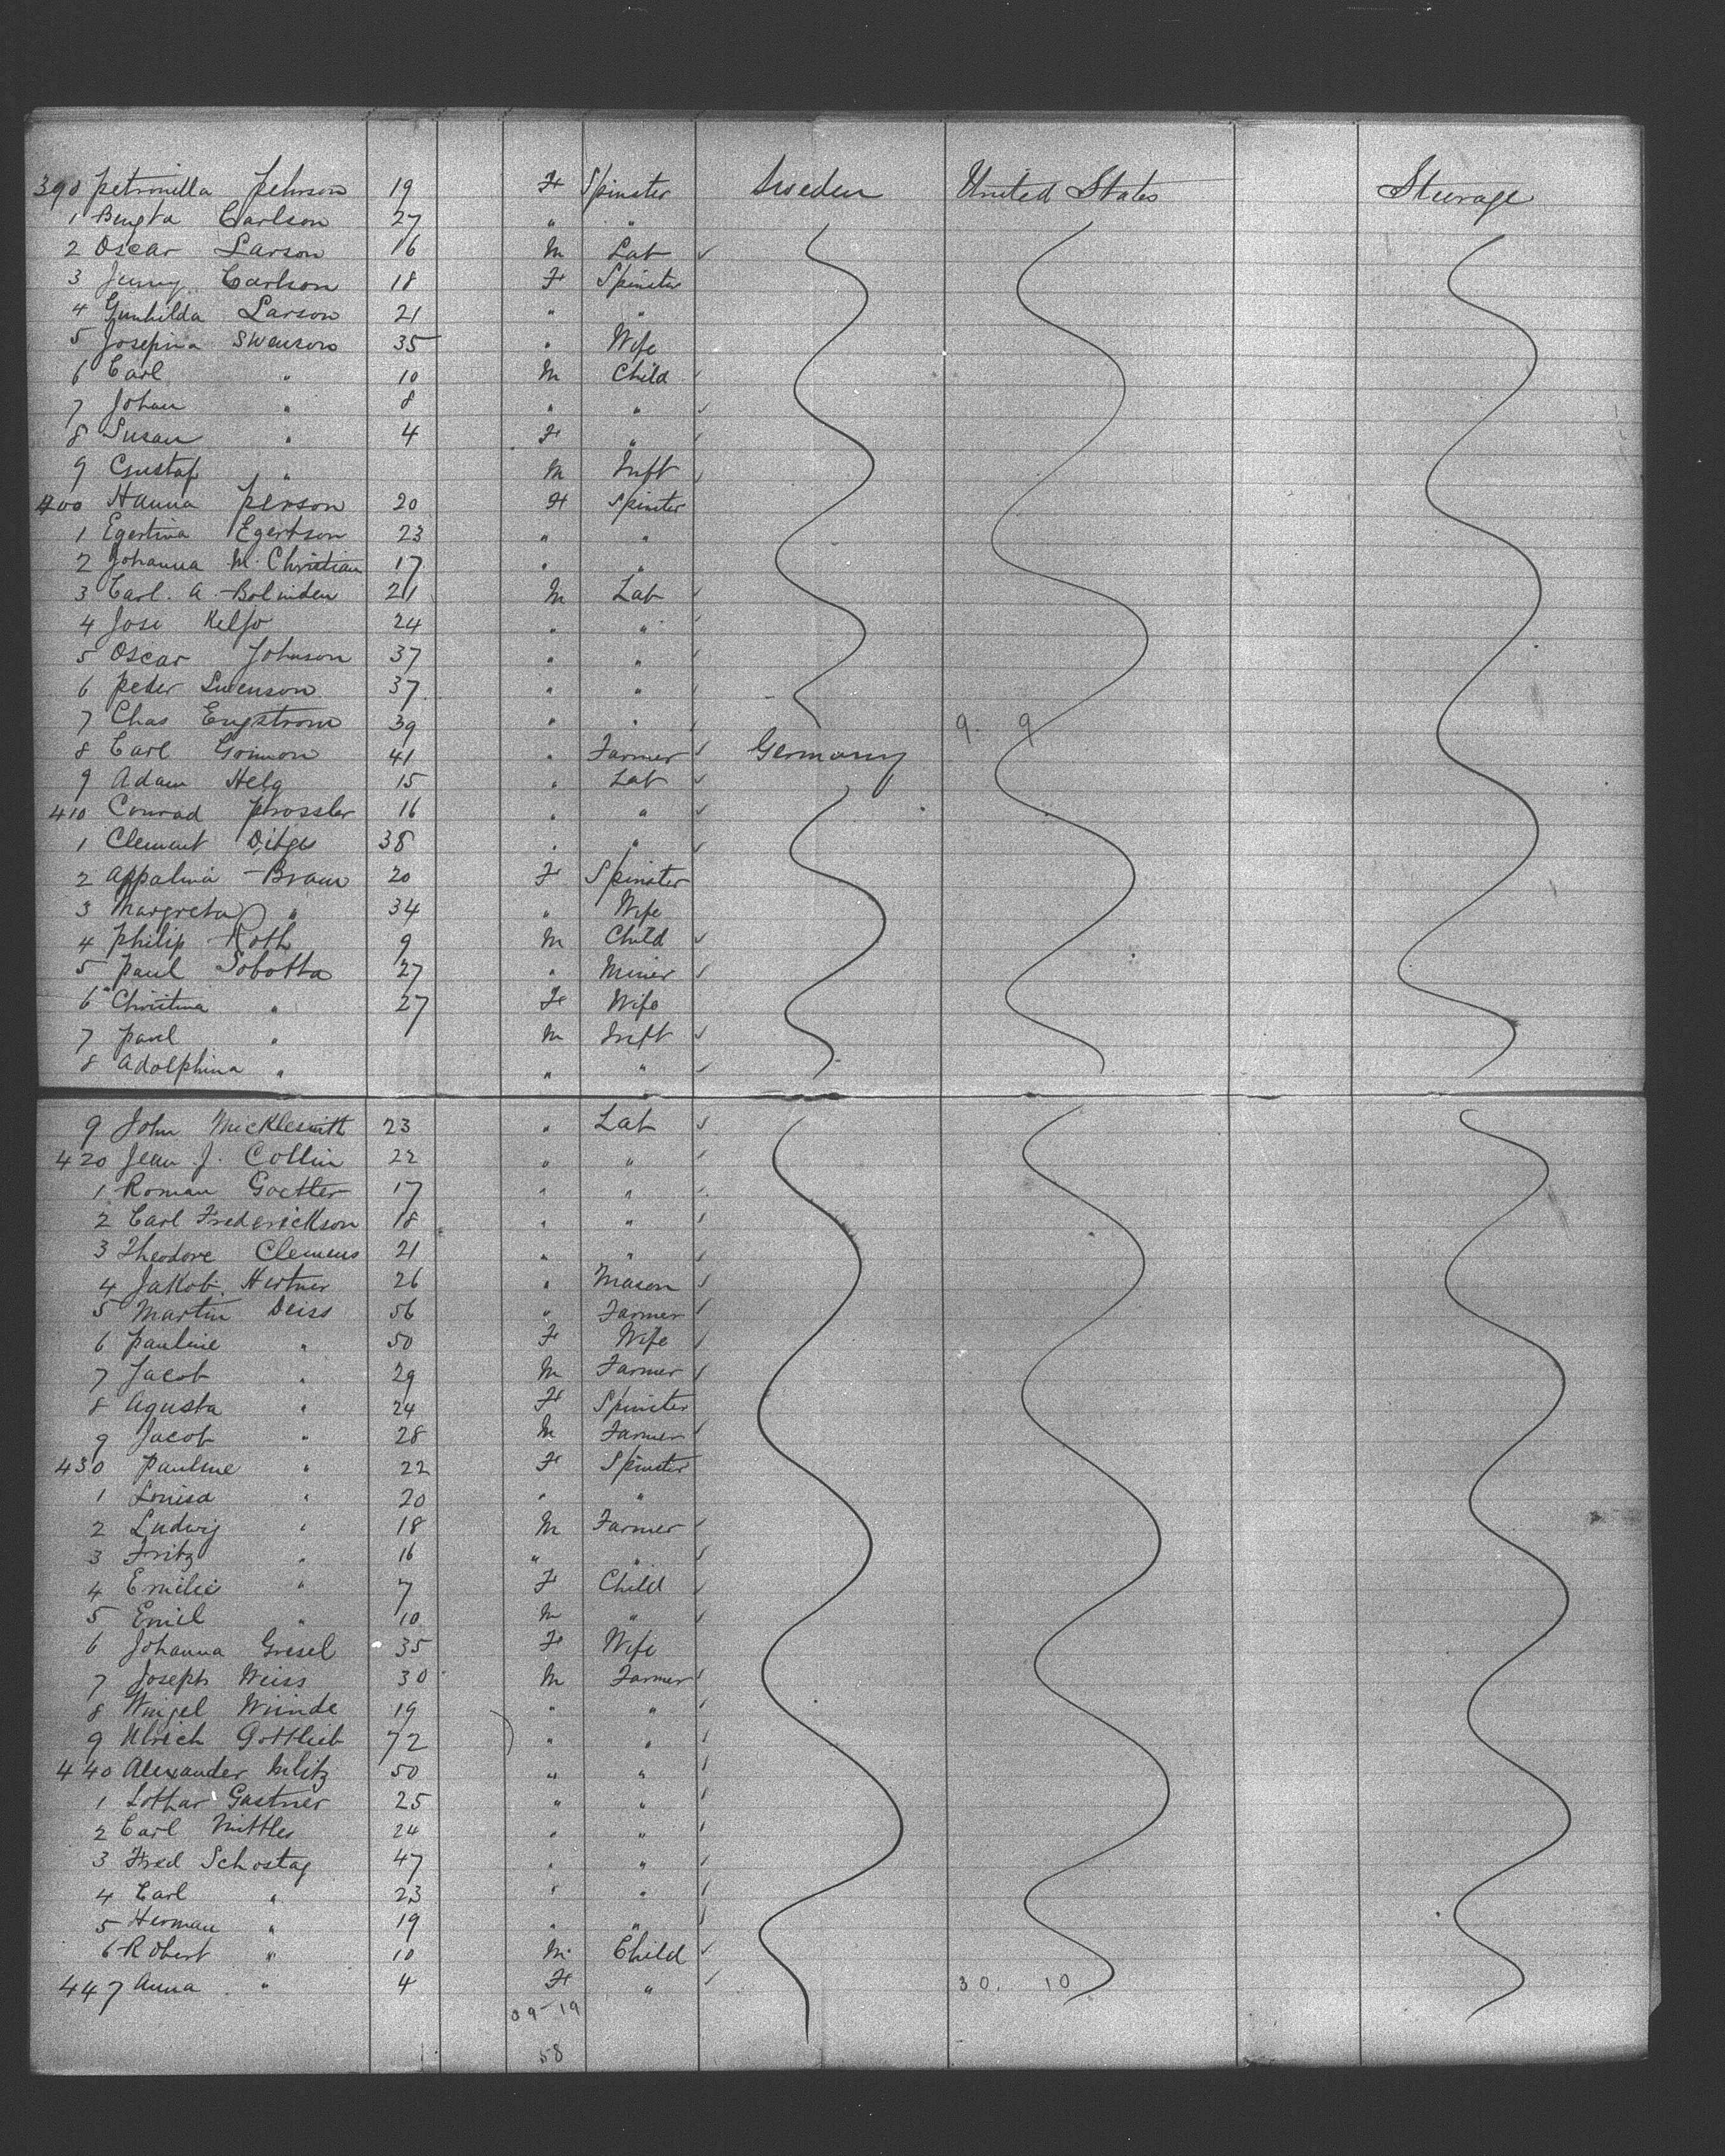 390 Petronilla Pehrson 19 F Spinster Sweden United States Steerage
1 Bengta Carlson 27 " "
2 Oscar Larson 16 M Lab
3 Jenny Carlson 18 F Spinster
4 Gunhilda Larson 21 " "
5 Josefina Swenson 35 " Wife
6 Carl " 10 M Child
7 Johan " 8 " "
8 Susan " 4 F "
9 Gustaf " M Inft
400 Hanna Person 20 F Spinster
1 Egertina Egertson 23 " "
2 Johanna M. Christian 17 " "
3 Carl. A. Bolinden 21 M Lab
4 Jose Kelfo 24 " "
5 Oscar Johnson 37 " "
6 Peter Swenson 37 " "
7 Chas Engstrom 39 " " 9. 9
8 Carl 41 " Farmer Germany
9 Adam Helg 15 " Lab
410 Conrad Prossler 16 " "
1 Clement 38 " "
2 Appalina Braun 20 F Spinster
3 Margreta " 34 " Wife
4 Philip Roth 9 M Child
5 Paul Sobotta 27 " Miner
6 Christina " 27 F Wife
7 Paul " M Inft
8 Adolphina " " "
9 John Micklesmith 23 " Lab
420 Jean J. Collin 22 " "
1 Roman Goetter 17 " "
2 Carl Frederickson 18 " "
3 Theodore Clemens 21 " "
4 Jakob Hertner 26 " Mason
5 Martin Deiss 56 " Farmer
6 Pauline " 50 F Wife
7 Jacob " 29 M Farmer
8 Agusta " 24 F Spinster
9 Jacob " 28 M Farmer
430 Pauline " 22 F Spinster
1 Louisa " 20 " "
2 Ludwig " 18 M Farmer
3 Fritz " 16 " "
4 Emilie " 7 F Child
5 Emil " 10 M "
6 Johanna Gresel 35 F Wife
7 Joseph Weiss 30 M Farmer
8 19 " "
9 Ulrich Gottlieb 72 " "
440 Alexander Militz 50 " "
1 Lothar Gastner 25 " "
2 Carl Mittler 24 " "
3 Fred Schostag 47 " "
4 Carl " 23 " "
5 Herman " 19 " "
6 Robert " 10 M Child
447 Anna " 4 F " 30. 10
39-19
58